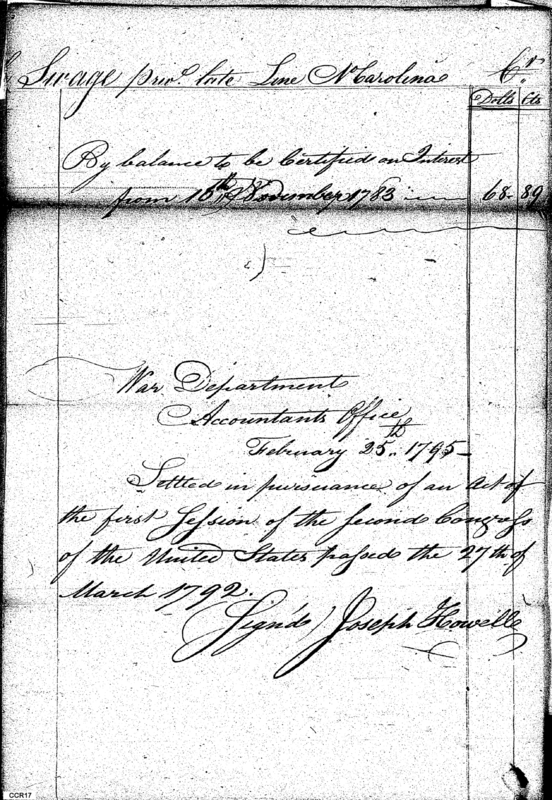 Swage priv.e late Line N.Carolina Cr.
Dolls Cts
By balance to be Certified on Interest
from 15th November 1783 68. 89
War Department
Accountants Office
February 25.th 1795
Settled in pursuance of an Act of
the first Session of the Second Congress
of the United States passed the 27th of
March 1792.
Sign'd) Joseph Howell
CCR17